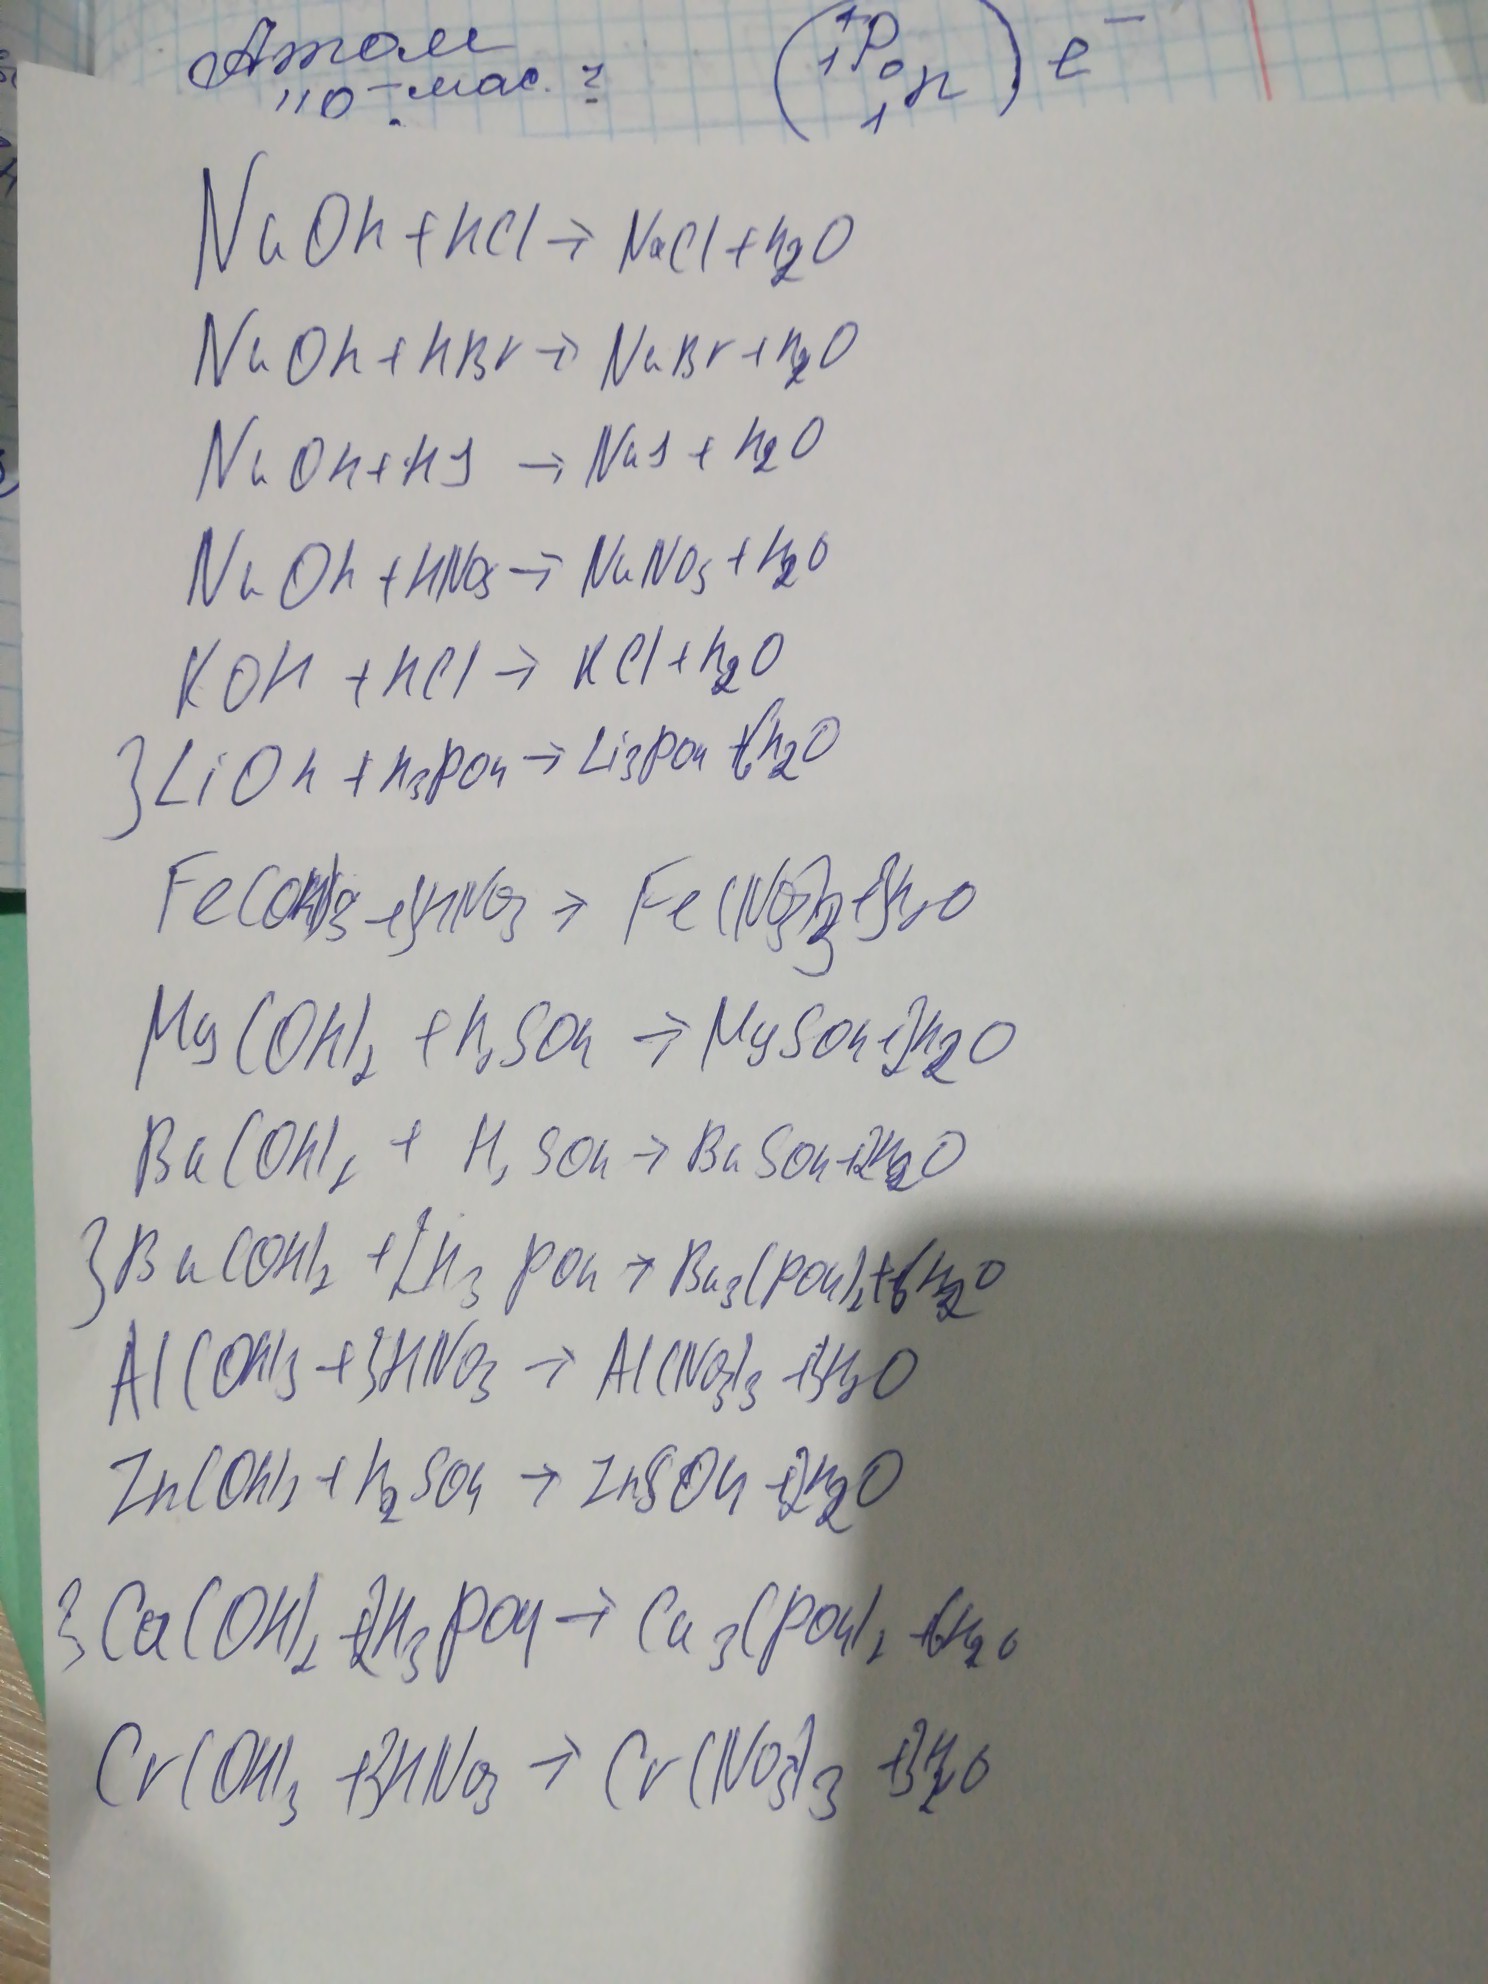 Атом
"0-мас. ?
(⁺₁p ⁰₁n) e⁻
NaOh + hCl → NaCl + h₂O
NaOh + hBr → NaBr + h₂O
NaOh + hJ → NaJ + h₂O
NaOh + HNO₃ → NaNO₃ + h₂O
KOH + hCl → KCl + h₂O
3LiOh + h₃PO₄ → Li₃PO₄ + 6h₂O
Fe(OH)₃ + 3HNO₃ → Fe(NO₃)₃ + 3h₂O
Mg(OH)₂ + h₂SO₄ → MgSO₄ + 2h₂O
Ba(OH)₂ + H₂SO₄ → BaSO₄ + 2H₂O
3Ba(OH)₂ + 2H₃PO₄ → Ba₃(PO₄)₂ + 6H₂O
Al(OH)₃ + 3HNO₃ → Al(NO₃)₃ + 3H₂O
Zn(OH)₂ + h₂SO₄ → ZnSO₄ + 2H₂O
3Ca(OH)₂ + 2H₃PO₄ → Ca₃(PO₄)₂ + 6H₂O
Cr(OH)₃ + 3HNO₃ → Cr(NO₃)₃ + 3H₂O